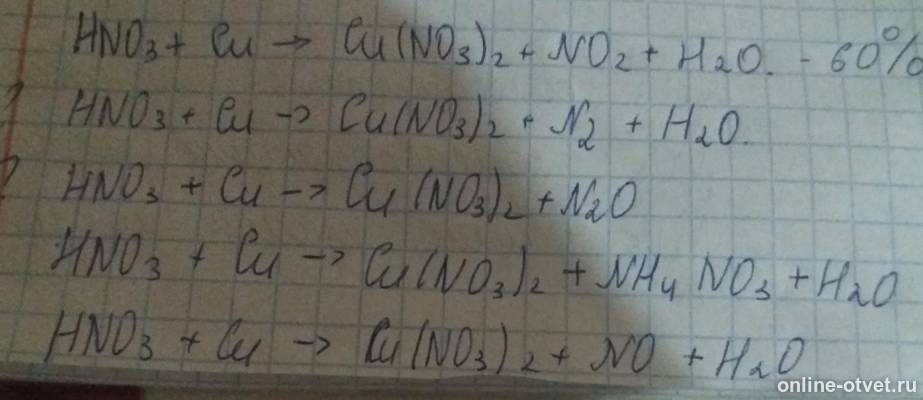 HNO3 + Cu → Cu(NO3)2 + NO2 + H2O. - 60%
? HNO3 + Cu → Cu(NO3)2 + N2 + H2O.
? HNO3 + Cu → Cu(NO3)2 + N2O
HNO3 + Cu → Cu(NO3)2 + NH4NO3 + H2O
HNO3 + Cu → Cu(NO3)2 + NO + H2O
online-otvet.ru